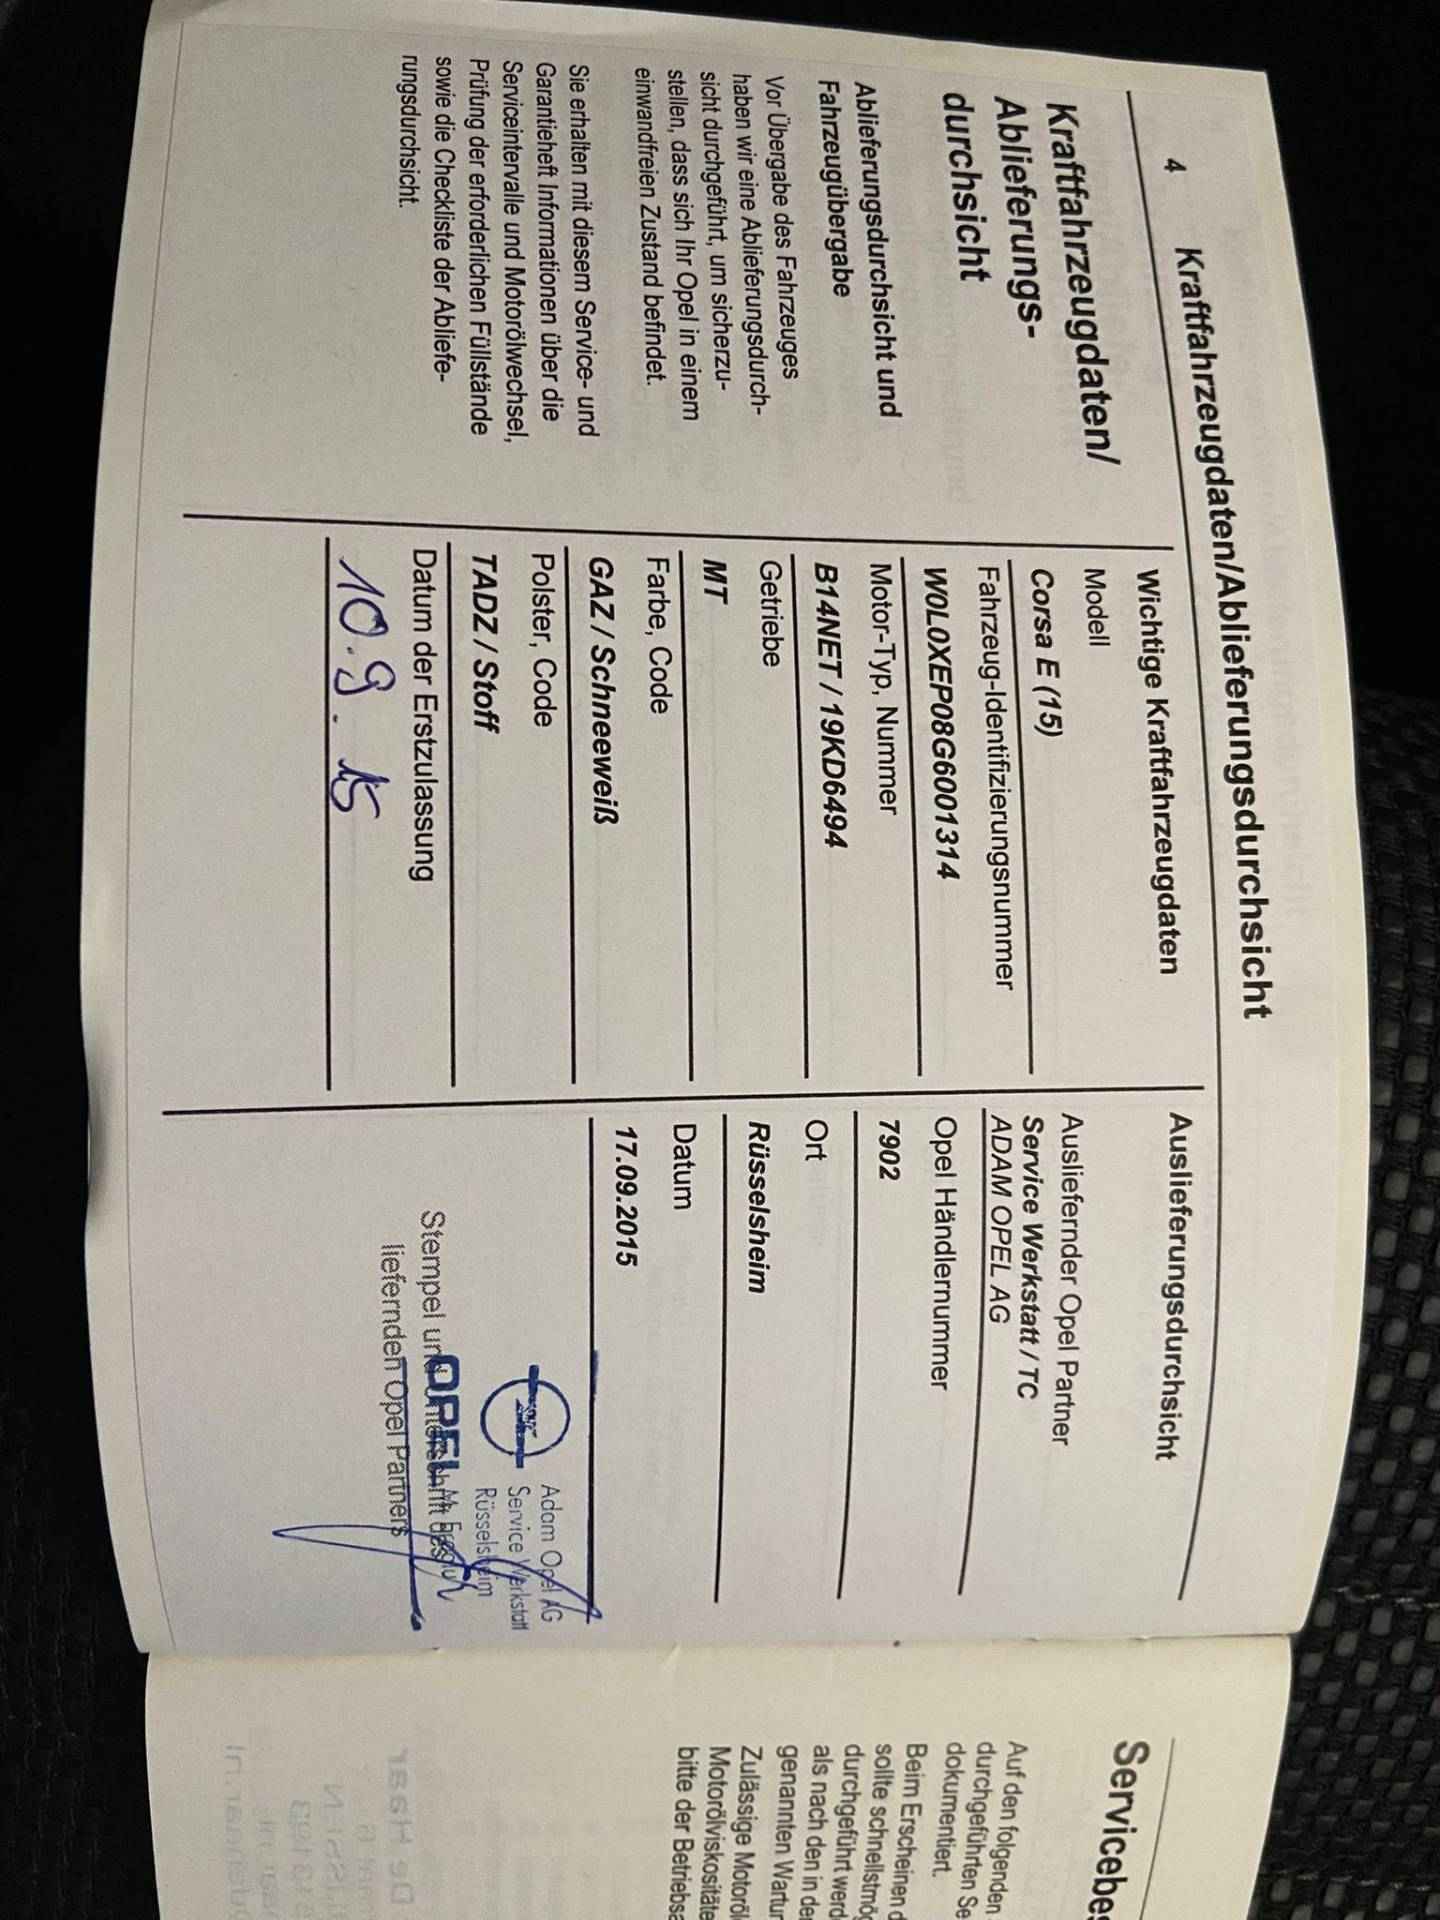 4 Kraftfahrzeugdaten/Ablieferungsdurchsicht
Kraftfahrzeugdaten/
Ablieferungs-
durchsicht
Ablieferungsdurchsicht und
Fahrzeugübergabe
Vor Übergabe des Fahrzeuges
haben wir eine Ablieferungsdurch-
sicht durchgeführt, um sicherzu-
stellen, dass sich Ihr Opel in einem
einwandfreien Zustand befindet.
Sie erhalten mit diesem Service- und
Garantieheft Informationen über die
Serviceintervalle und Motorölwechsel,
Prüfung der erforderlichen Füllstände
sowie die Checkliste der Abliefe-
rungsdurchsicht.
Wichtige Kraftfahrzeugdaten
Modell
Corsa E (15)
Fahrzeug-Identifizierungsnummer
W0L0XEP08G6001314
Motor-Typ, Nummer
B14NET / 19KD6494
Getriebe
MT
Farbe, Code
GAZ / Schneeweiß
Polster, Code
TADZ / Stoff
Datum der Erstzulassung
10.9.15
Auslieferungsdurchsicht
Ausliefernder Opel Partner
Service Werkstatt / TC
ADAM OPEL AG
Opel Händlernummer
7902
Ort
Rüsselsheim
Datum
17.09.2015
Adam Opel AG
Service Werkstatt
Rüsselsheim
OPEL
Stempel und Unterschrift des
liefernden Opel Partners
Servicebes
Auf den folgenden
durchgeführten Se
dokumentiert.
Beim Erscheinen d
sollte schnellstmög
durchgeführt werd
als nach den in de
genannten Wartun
Zulässige Motoröl
Motorölviskositäte
bitte der Betriebsa